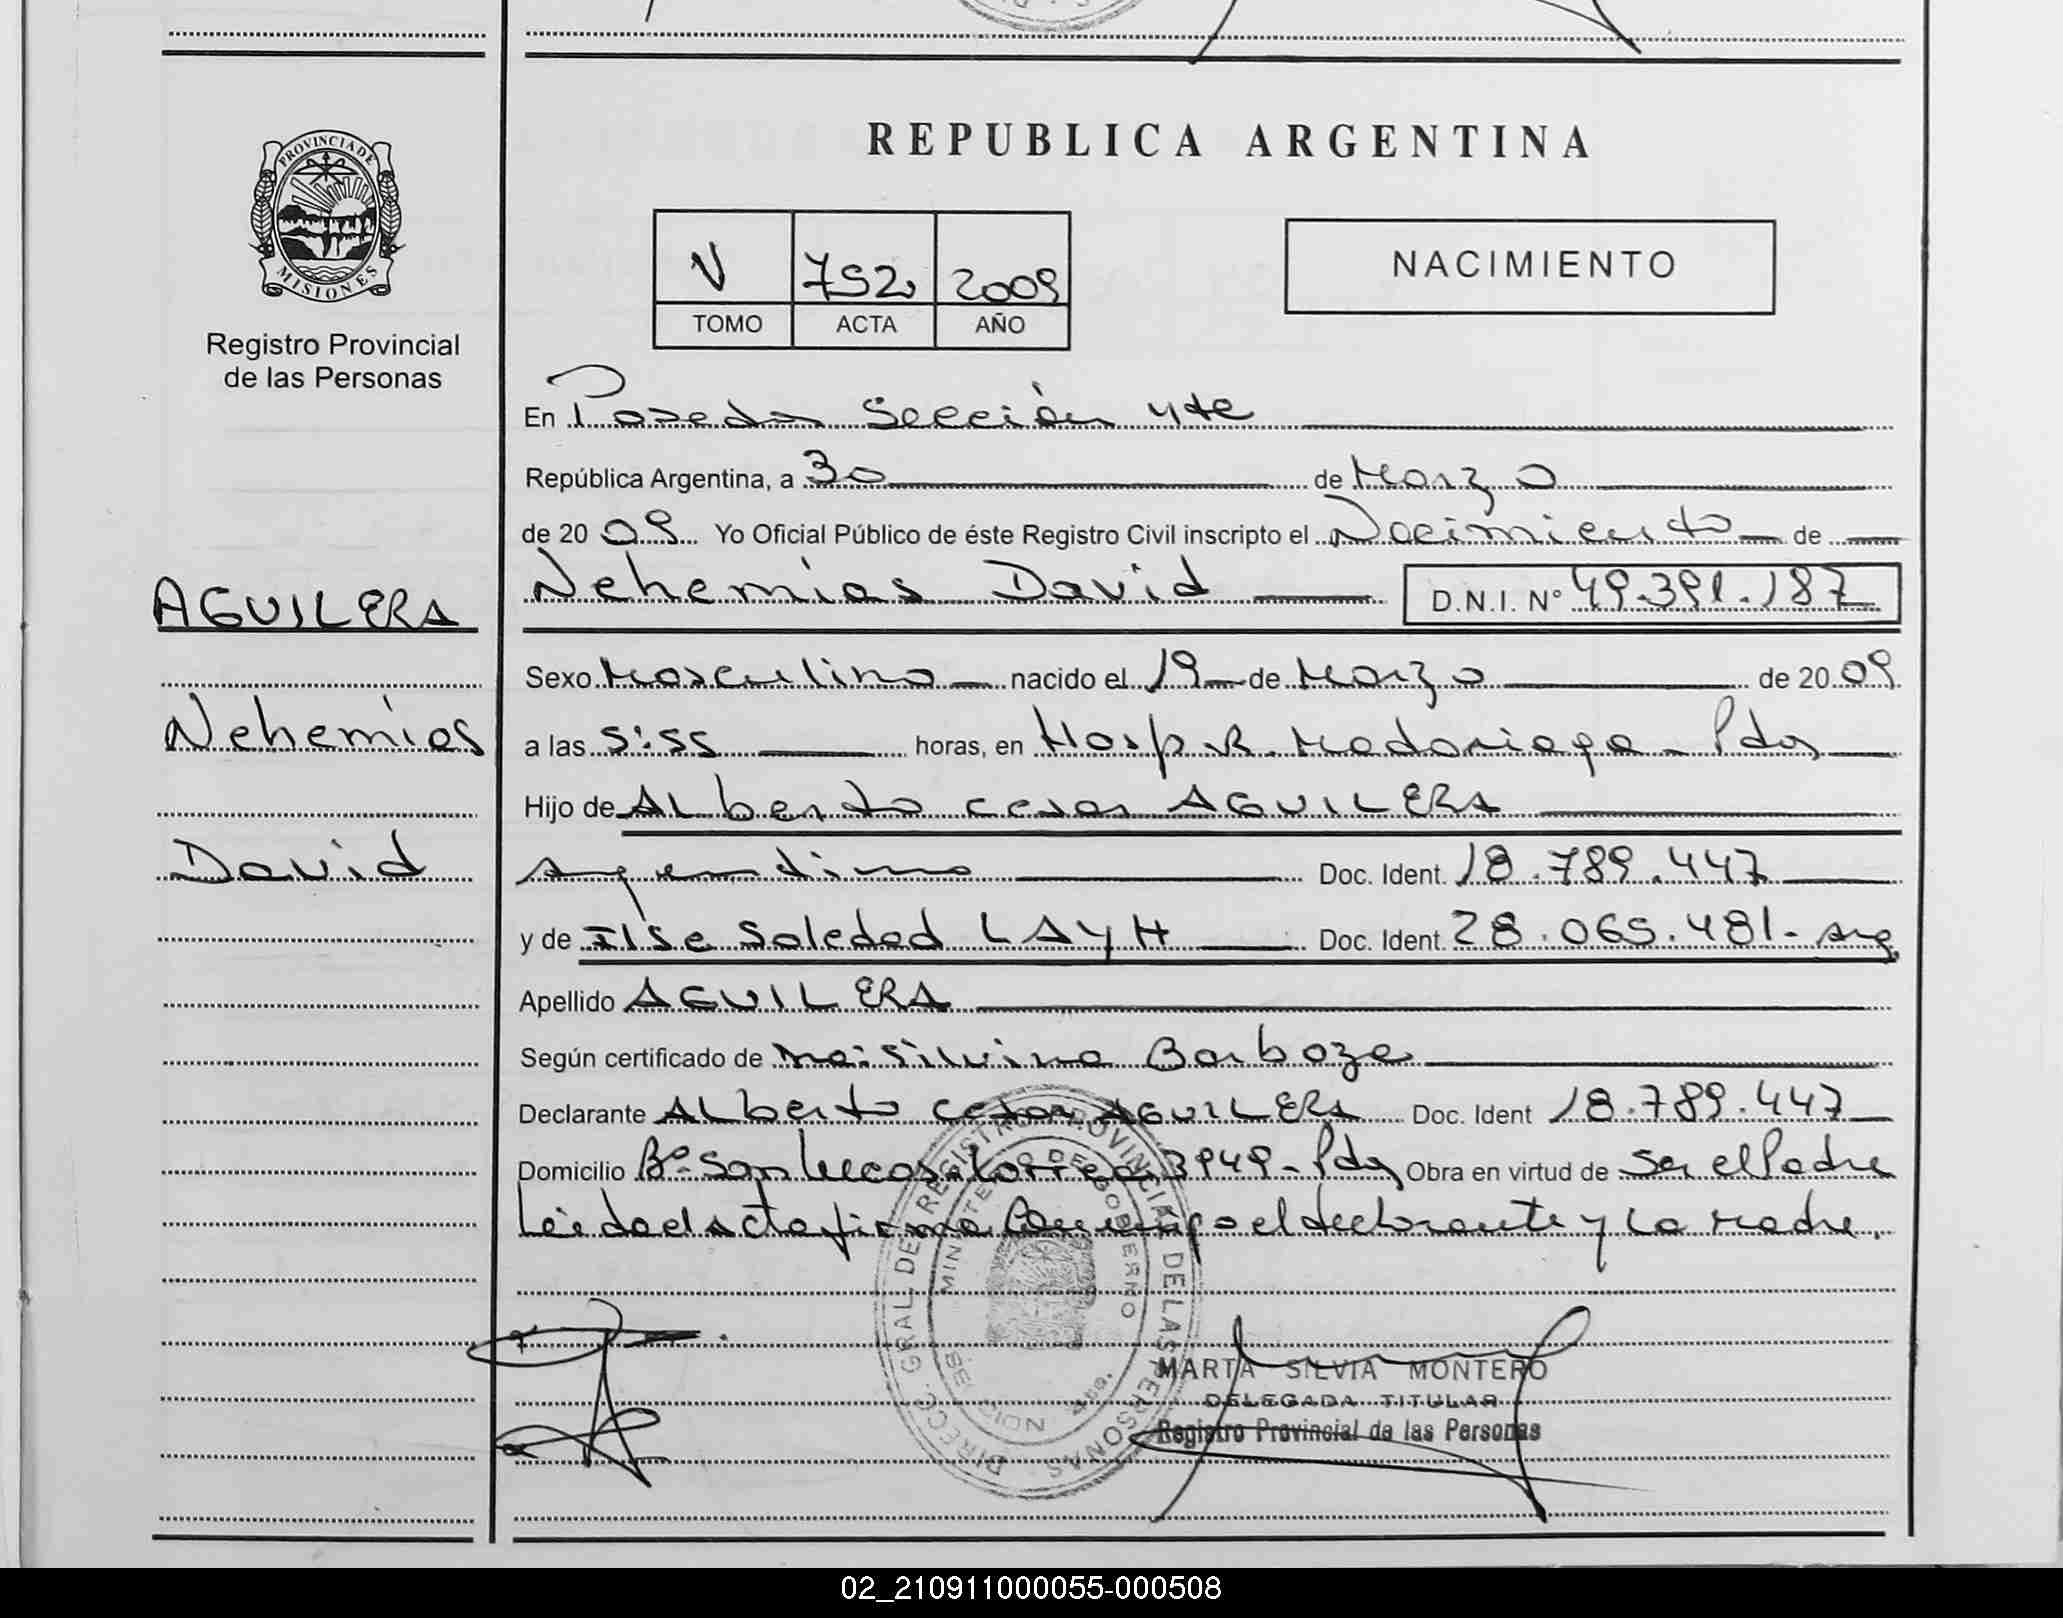 PROVINCIA DE
MISIONES
Registro Provincial
de las Personas
AGUILERA
Nehemias
David
REPUBLICA ARGENTINA
V 752 2009
TOMO ACTA AÑO
NACIMIENTO
En Posadas Sección 4te
República Argentina, a 30 de Marzo
de 20 09 Yo Oficial Público de éste Registro Civil inscripto el Nacimiento de
Nehemias David D.N.I. N° 49.391.187
Sexo Masculino nacido el 19 de Marzo de 20 09
a las 5:55 horas, en Hosp. R. Madariaga - Pdas
Hijo de Alberto Cesar AGUILERA
Argentino Doc. Ident. 18.789.447
y de Ilse Soledad LAYH Doc. Ident. 28.065.481- Arg
Apellido AGUILERA
Según certificado de Ma. Silvina Barboza
Declarante Alberto Cesar AGUILERA Doc. Ident 18.789.447
Domicilio B° San Lucas 3949 - Pdas Obra en virtud de Ser el Padre
Leida el acta firma Conmigo el declarante y La Madre.
DIRECC. GRAL. DEL REGISTRO PROVINCIAL DE LAS PERSONAS
MINISTERIO DE GOBIERNO
MARTA SILVIA MONTERO
DELEGADA TITULAR
Registro Provincial de las Personas
02_210911000055-000508